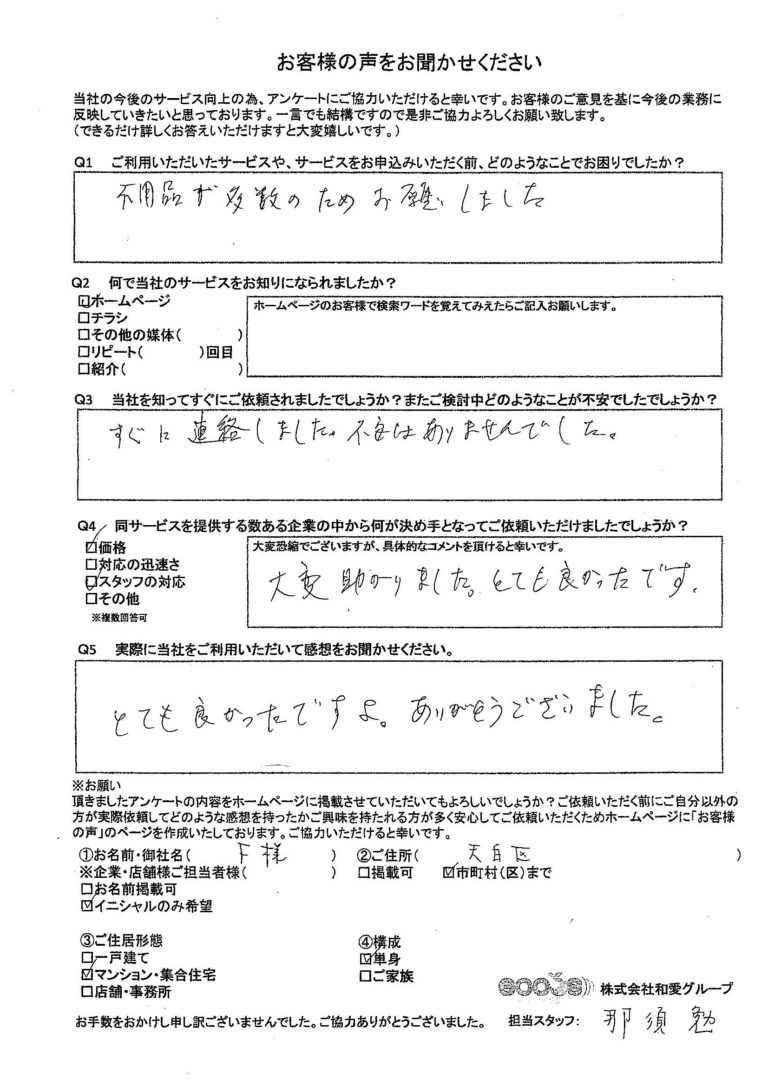 お客様の声をお聞かせください
当社の今後のサービス向上の為、アンケートにご協力いただけると幸いです。お客様のご意見を基に今後の業務に
反映していきたいと思っております。一言でも結構ですので是非ご協力よろしくお願い致します。
(できるだけ詳しくお答えいただけますと大変嬉しいです。)
Q1 ご利用いただいたサービスや、サービスをお申込みいただく前、どのようなことでお困りでしたか？
不用品が多数のためお願いしました
Q2 何で当社のサービスをお知りになられましたか？
☑ホームページ
□チラシ
□その他の媒体( )
□リピート( )回目
□紹介( )
ホームページのお客様で検索ワードを覚えてみえたらご記入お願いします。
Q3 当社を知ってすぐにご依頼されましたでしょうか？またご検討中どのようなことが不安でしたでしょうか？
すぐに連絡しました。不安はありませんでした。
Q4 同サービスを提供する数ある企業の中から何が決め手となってご依頼いただけましたでしょうか？
☑価格
□対応の迅速さ
☑スタッフの対応
□その他
※複数回答可
大変恐縮でございますが、具体的なコメントを頂けると幸いです。
大変助かりました。とても良かったです。
Q5 実際に当社をご利用いただいて感想をお聞かせください。
とても良かったですよ。ありがとうございました。
※お願い
頂きましたアンケートの内容をホームページに掲載させていただいてもよろしいでしょうか？ご依頼いただく前にご自分以外の
方が実際依頼してどのような感想を持ったかご興味を持たれる方が多く安心してご依頼いただくためホームページに「お客様
の声」のページを作成いたしております。ご協力いただけると幸いです。
①お名前・御社名( F様 ) ②ご住所( 天白区 )
※企業・店舗様ご担当者様( ) □掲載可 ☑市町村(区)まで
□お名前掲載可
☑イニシャルのみ希望
③ご住居形態 ④構成
□一戸建て ☑単身
☑マンション・集合住宅 □ご家族
□店舗・事務所
株式会社和愛グループ
お手数をおかけし申し訳ございませんでした。ご協力ありがとうございました。 担当スタッフ: 那須 勉